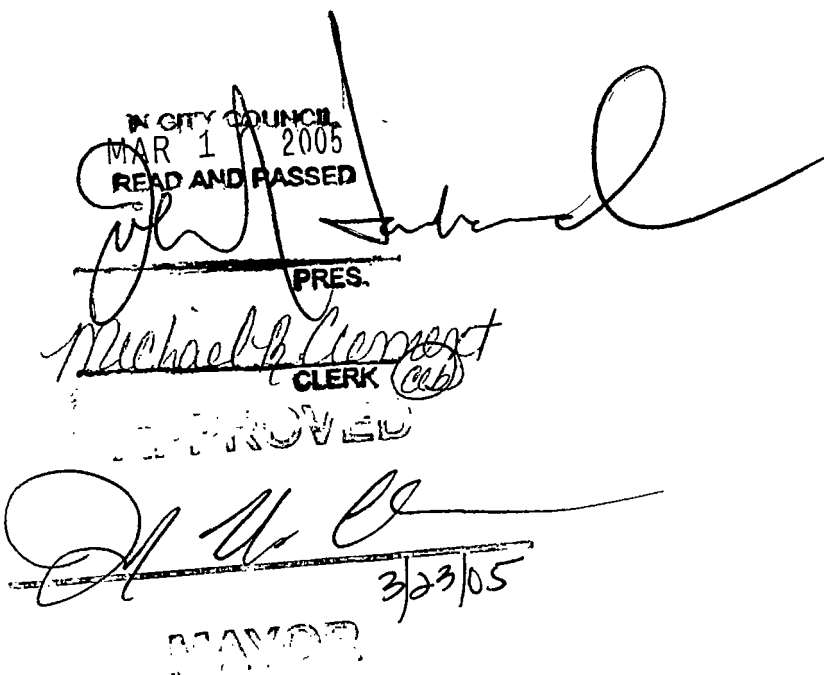 IN CITY COUNCIL
MAR 1 2005
READ AND PASSED
John
PRES.
Michael R Clement
CLERK
APPROVED
3/23/05
MAYOR